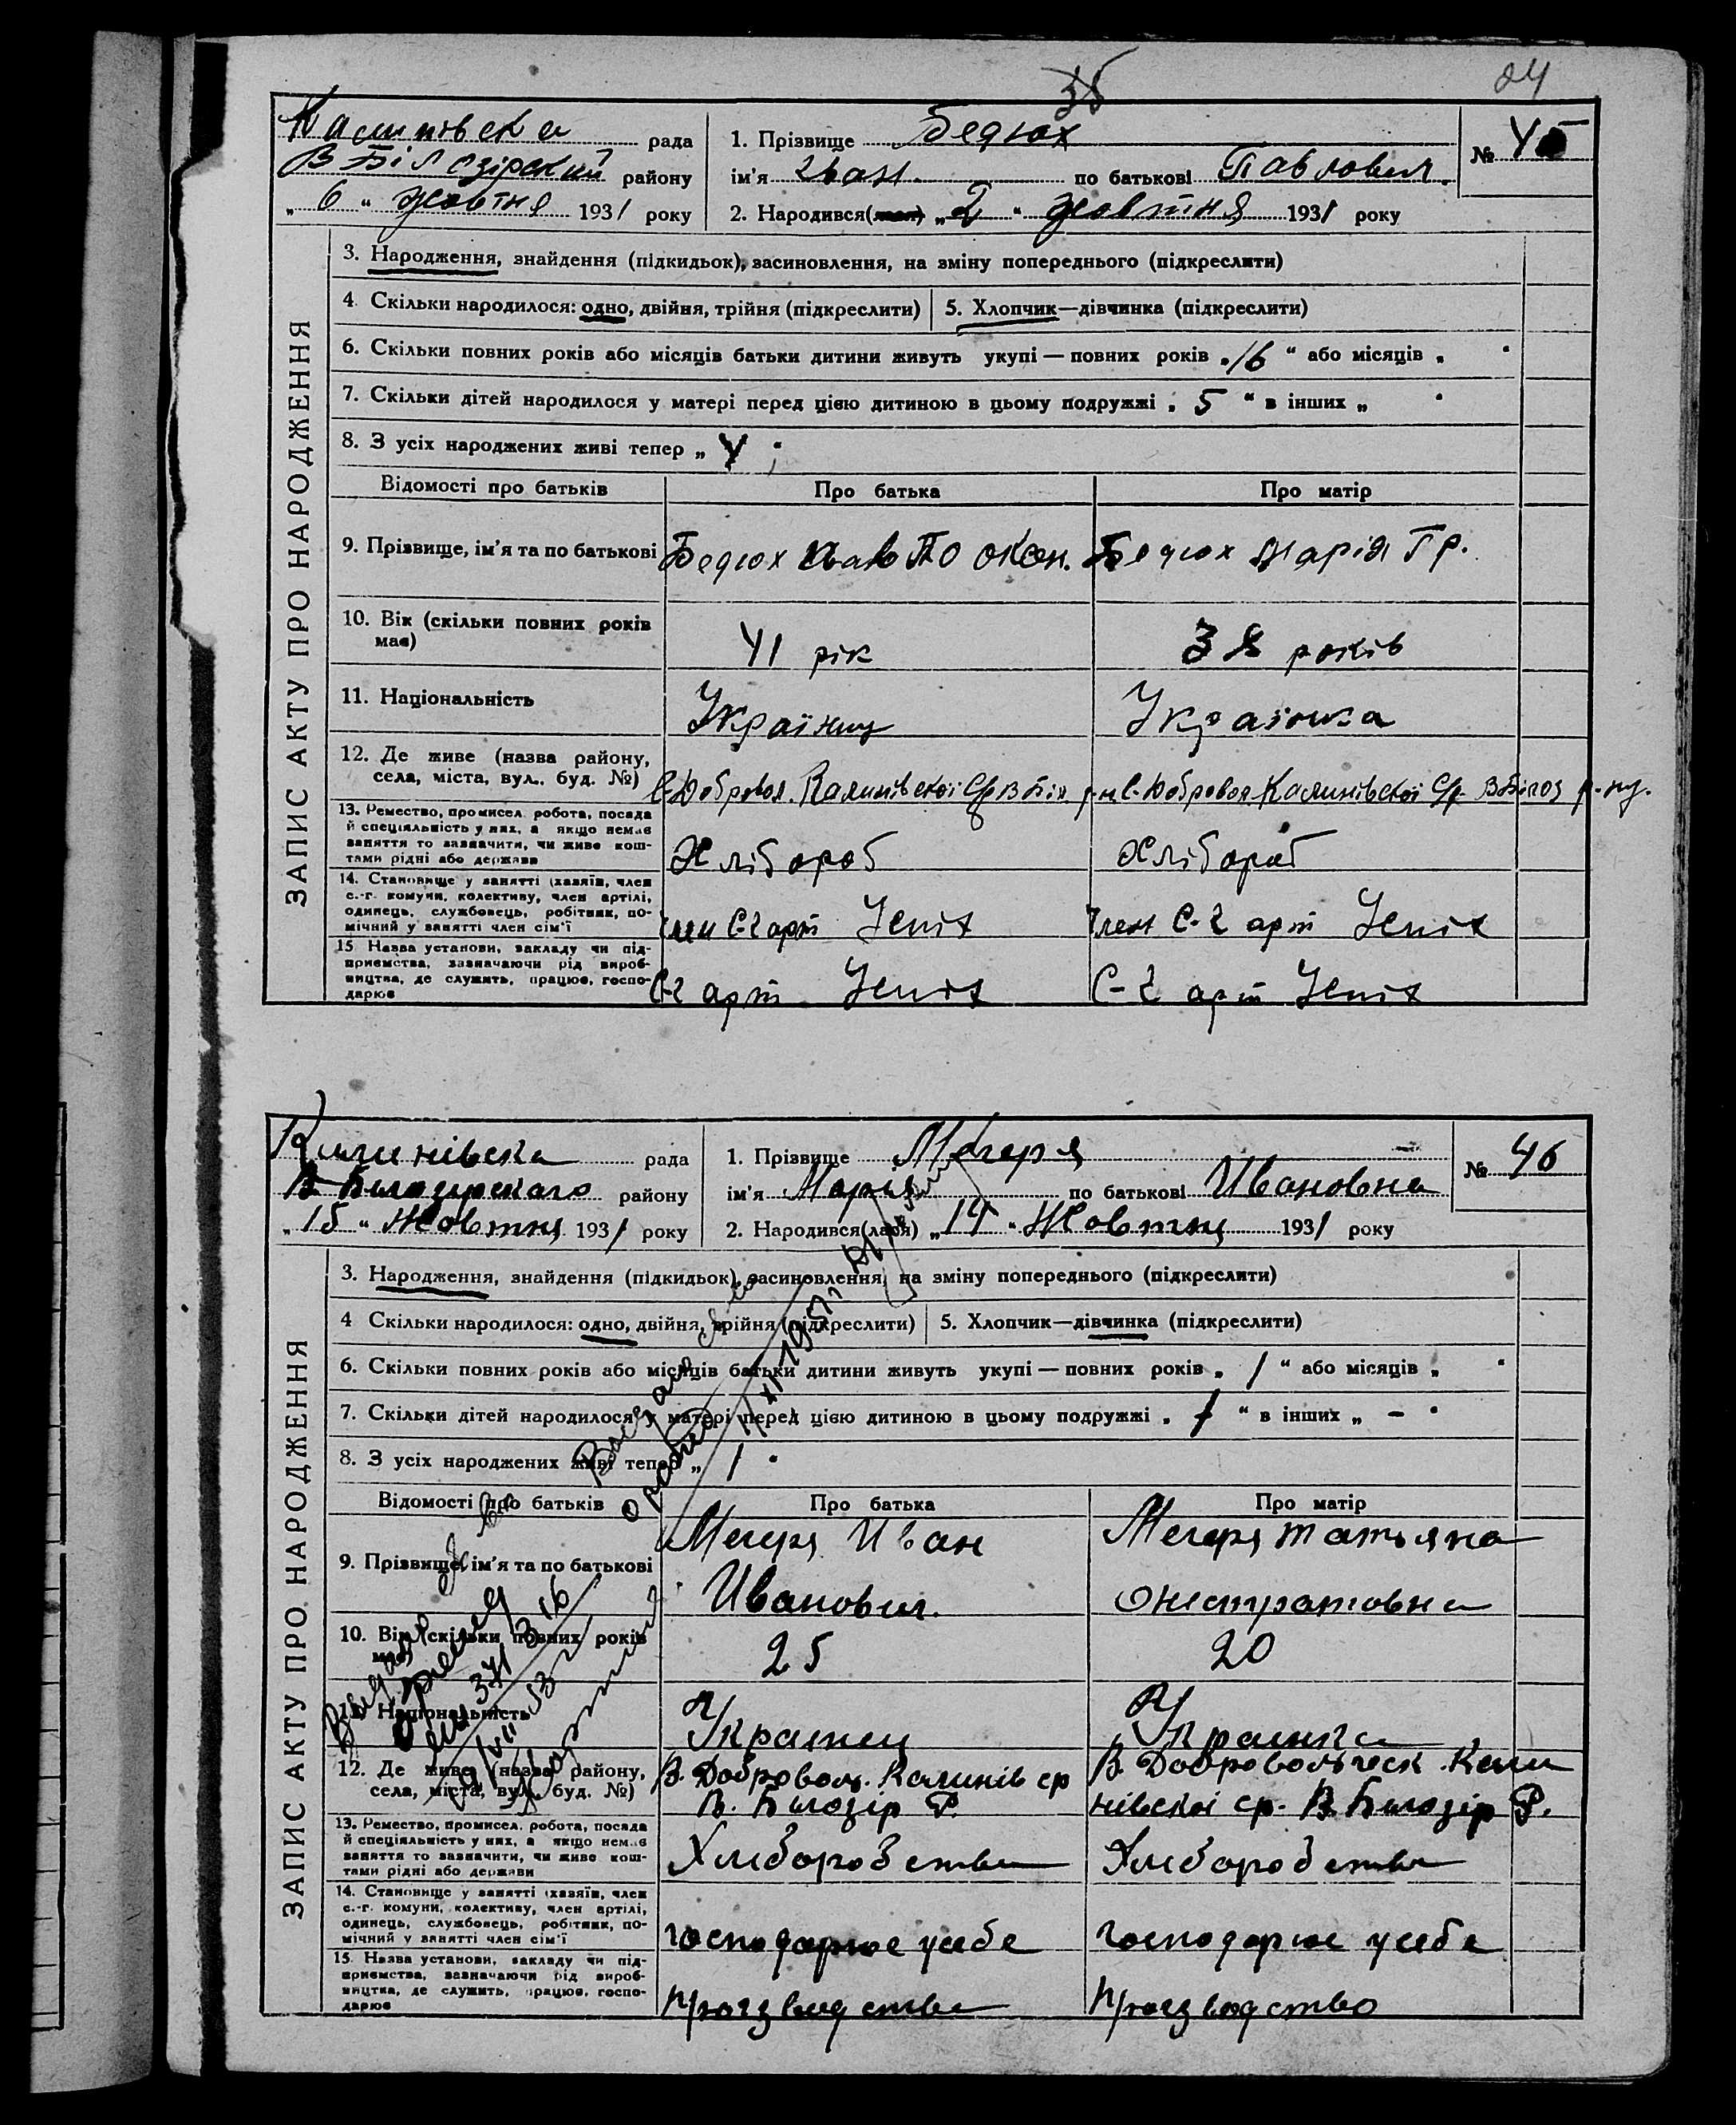 24
Калинівска рада
В Білозірский району
„ 6 “ жовтня 1931 року
1. Прізвище Бедюх
ім'я Іван по батькові Павлович
2. Народився(лася) „2“ жовтня 1931 року
№ 45
ЗАПИС АКТУ ПРО НАРОДЖЕННЯ
3. Народження, знайдення (підкидьок), засиновлення, на зміну попереднього (підкреслити)
4. Скільки народилося: одно, двійня, трійня (підкреслити) 5. Хлопчик—дівчинка (підкреслити)
6. Скільки повних років або місяців батьки дитини живуть укупі — повних років „16“ або місяців „ “
7. Скільки дітей народилося у матері перед цією дитиною в цьому подружжі „ 5 “ в інших „ “
8. З усіх народжених живі тепер „ 4
Відомості про батьків Про батька Про матір
9. Прізвище, ім'я та по батькові Бедюх Бедюх Марія Гр.
10. Вік (скільки повних років має) 41 рік 38 років
11. Національність Українец Українка
12. Де живе (назва району, села, міста, вул. буд. №) С. Добровол. Калинівскої Ср В Біл. р-н С. Добровол Калинівскої Ср В Білоз р-ну.
13. Ремество, промисел, робота, посада
й спеціяльність у них, а якщо немає
заняття то зазначити, чи живе кош-
тами рідні або держави Хлібороб Хлібороб
14. Становище у занятті (хазяїн, член
с.-г. комуни, колективу, член артілі,
одинець, службовець, робітник, по-
мічний у занятті член сім'ї член С-г арт Успіх член С-г арт Успіх
15 Назва установи, закладу чи під-
приємства, зазначаючи рід вироб-
ництва, де служить, працює, госпо-
дарює С-г арт Успіх С-г арт Успіх
Калинівска рада
В-Билозирскаго району
„ 15 “ Жовтня 1931 року
1. Прізвище Мегеря
ім'я Мария по батькові Ивановна
2. Народився(лася) „14“ Жовтня 1931 року
№ 46
ЗАПИС АКТУ ПРО НАРОДЖЕННЯ
3. Народження, знайдення (підкидьок), засиновлення, на зміну попереднього (підкреслити)
4 Скільки народилося: одно, двійня, трійня (підкреслити) 5. Хлопчик—дівчинка (підкреслити)
6. Скільки повних років або місяців батьки дитини живуть укупі — повних років „ 1 “ або місяців „ “
7. Скільки дітей народилося у матері перед цією дитиною в цьому подружжі „ 1 “ в інших „ – “
8. З усіх народжених живі тепер „ 1 “
Відомості про батьків Про батька Про матір
9. Прізвище, ім'я та по батькові Мегеря Иван Иванович. Мегеря Татьяна
10. Вік (скільки повних років має) 25 20
11. Національність Украинец Украинка
12. Де живе (назва району, села, міста, вул. буд. №) В. Доброволь. Калинів ср В. Билозір Р. Калинівскої ср. В. Билозір Р.
13. Ремество, промисел, робота, посада
й спеціяльність у них, а якщо немає
заняття то зазначити, чи живе кош-
тами рідні або держави Хлиборобства Хлиборобства
14. Становище у занятті (хазяїн, член
с.-г. комуни, колективу, член артілі,
одинець, службовець, робітник, по-
мічний у занятті член сім'ї господарює у себе господарює у себе
15. Назва установи, закладу чи під-
приємства, зазначаючи рід вироб-
ництва, де служить, працює, госпо-
дарює